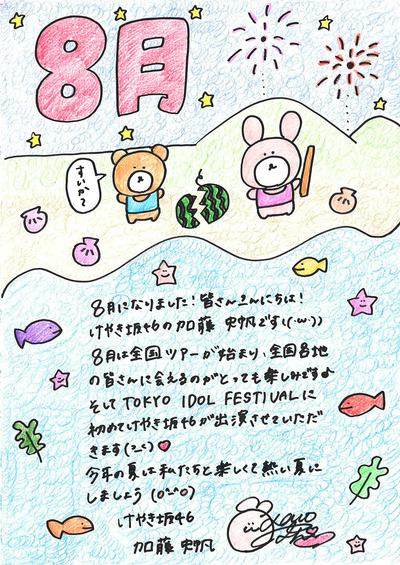 8月
すいか〜
8月になりました!皆さんこんにちは!
けやき坂46の加藤史帆です!(・ω・))
8月は全国ツアーが始まり、全国各地
の皆さんに会えるのがとっても楽しみです♪
そしてTOKYO IDOL FESTIVALに
初めてけやき坂46が出演させていただ
きます(ˊᵕˋ)♥
今年の夏は私たちと楽しくて熱い夏に
しましょう(o^^o)
けやき坂46
加藤史帆